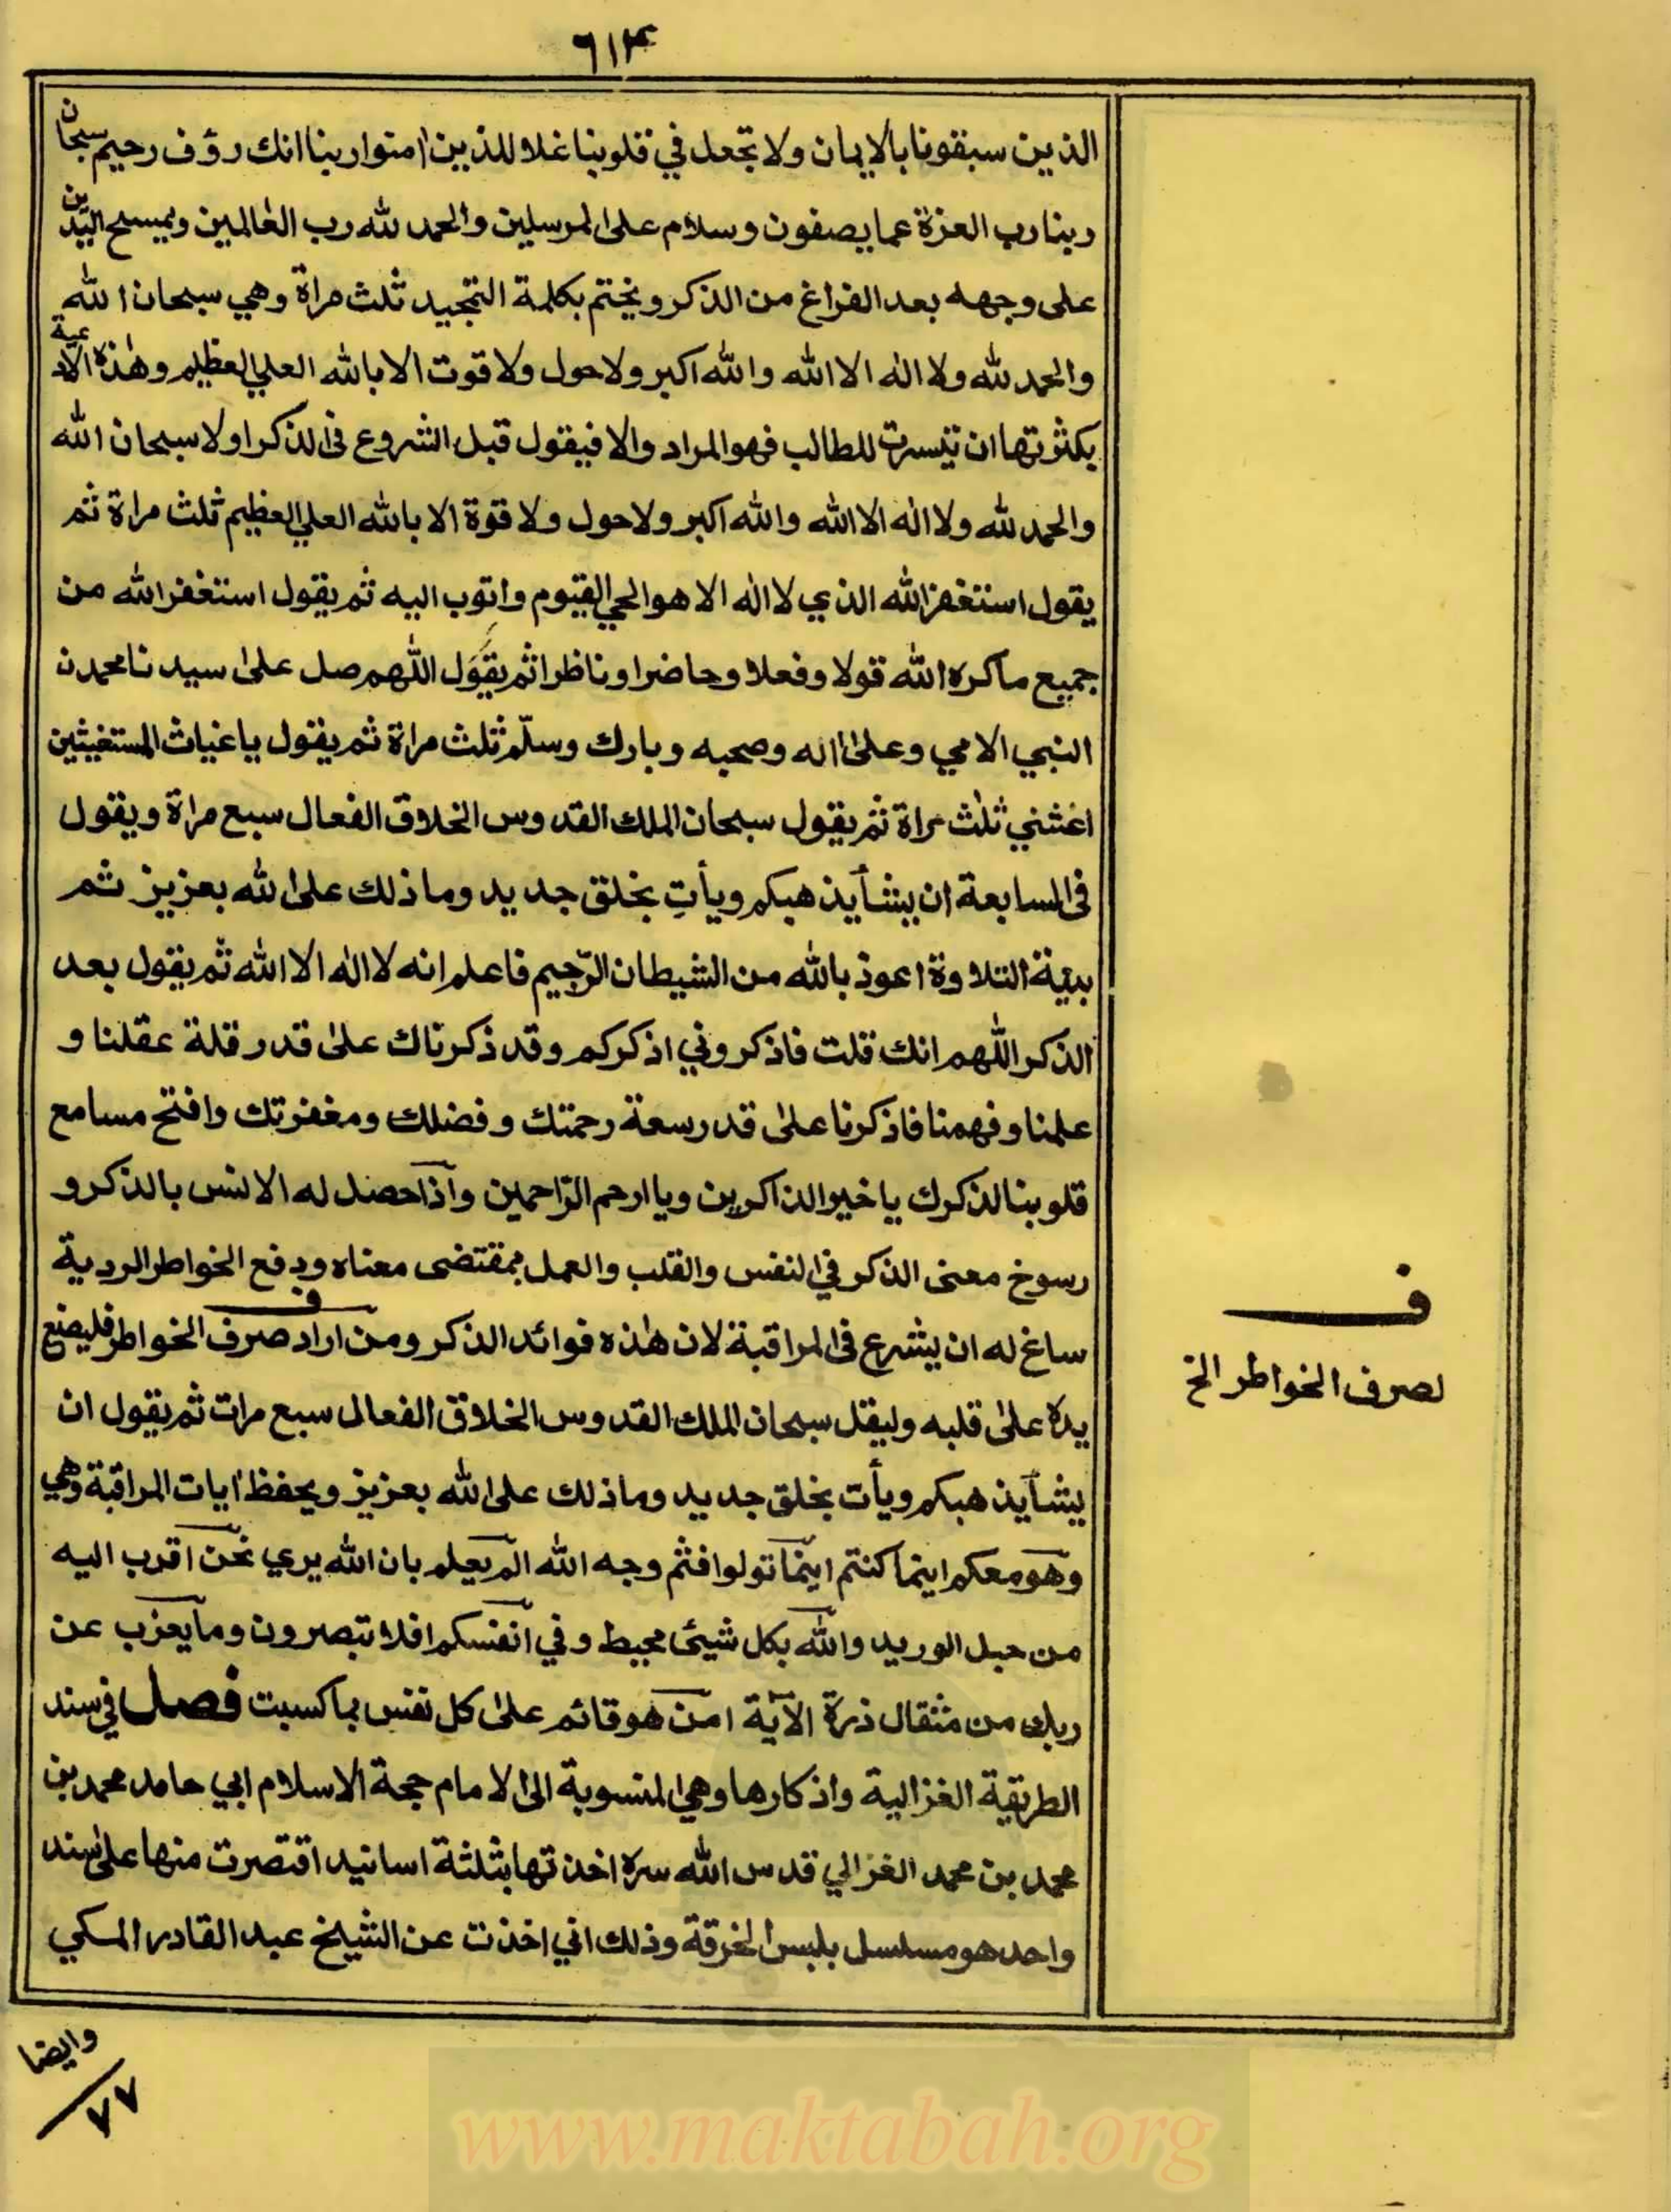 ٦١٣
الذين سبقونا بالايمان ولا تجعل في قلوبنا غلا للذين امنوا ربنا انك رؤف رحيم سبحان
ربنا رب العزة عما يصفون وسلام على المرسلين والحمد لله رب العالمين ويمسح اليدين
على وجهه بعد الفراغ من الذكر ويختم بكلمة التمجيد ثلث مراة وهي سبحان الله
والحمد لله ولا اله الا الله والله اكبر ولا حول ولا قوت الا بالله العلي العظيم وهذه الادعية
بكثرتها ان تيسرت للطالب فهو المراد والا فيقول قبل الشروع في الذكر اولا سبحان الله
والحمد لله ولا اله الا الله والله اكبر ولا حول ولا قوة الا بالله العلي العظيم ثلث مراة ثم
يقول استغفر الله الذي لا اله الا هو الحي القيوم واتوب اليه ثم يقول استغفر الله من
جميع ما كره الله قولا وفعلا وحاضرا وناظرا ثم يقول اللهم صل على سيدنا محمدن
النبي الامي وعلى اله وصحبه وبارك وسلّم ثلث مراة ثم يقول يا غياث المستغيثين
اغثني ثلث مراة ثم يقول سبحان الملك القدوس الخلاق الفعال سبع مراة ويقول
في السابعة ان يشأ يذهبكم ويأتِ بخلق جديد وما ذلك على الله بعزيز ثم
بنية التلاوة اعوذ بالله من الشيطان الرّجيم فاعلم انه لا اله الا الله ثم يقول بعد
الذكر اللهم انك قلت فاذكروني اذكركم وقد ذكرناك على قدر قلة عقلنا و
علمنا وفهمنا فاذكرنا على قدر سعة رحمتك وفضلك ومغفرتك وافتح مسامع
قلوبنا لذكرك يا خير الذاكرين ويا ارحم الرّاحمين واذا حصل له الانس بالذكر و
رسوخ معنى الذكر في النفس والقلب والعمل بمقتضى معناه ودفع الخواطر الردية
ساغ له ان يشرع في المراقبة لان هذه فوائد الذكر ومن اراد صرف الخواطر فليضع
ف
لصرف الخواطر الخ
يده على قلبه وليقل سبحان الملك القدوس الخلاق الفعال سبع مرات ثم يقول ان
يشأ يذهبكم ويأت بخلق جديد وما ذلك على الله بعزيز ويحفظ ايات المراقبة وهي
وهو معكم اينما كنتم اينما تولوا فثم وجه الله الم يعلم بان الله يري نحن اقرب اليه
من حبل الوريد والله بكل شيئ محيط وفي انفسكم افلا تبصرون وما يعزب عن
ربك من مثقال ذرة الآية امن هو قائم على كل نفس بما كسبت فصل في سند
الطريقة الغزالية واذكارها وهي المنسوبة الى الامام حجة الاسلام ابي حامد محمد بن
محمد بن محمد الغزالي قدس الله سره اخذتها بثلثة اسانيد اقتصرت منها على سند
واحد هو مسلسل بلبس الخرقة وذلك اني اخذت عن الشيخ عبد القادر المكي
وايضا
٧٧
www.maktabah.org